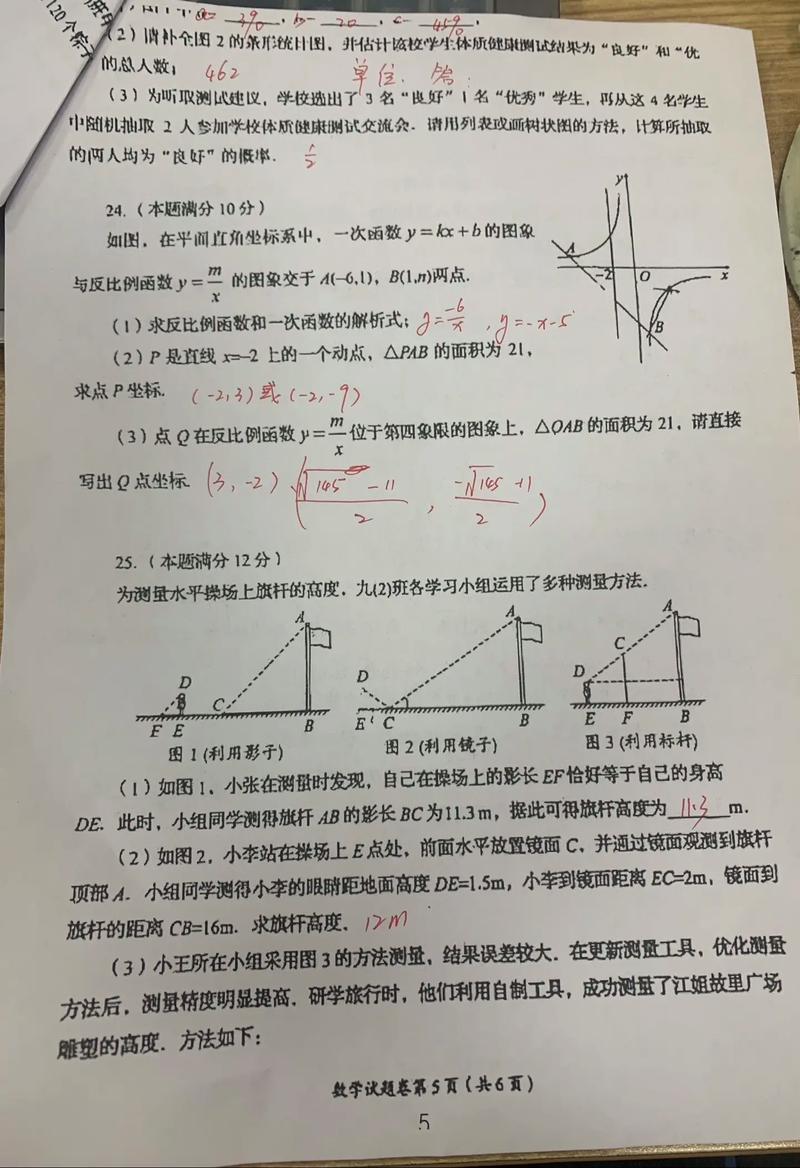 120个粽子
a= 2% , b= 20 , c= 45% .
(2)请补全图2的条形统计图，并估计该校学生体质健康测试结果为“良好”和“优
的总人数； 462 单位、答：
(3)为听取测试建议，学校选出了3名“良好”1名“优秀”学生，再从这4名学生
中随机抽取2人参加学校体质健康测试交流会．请用列表或画树状图的方法，计算所抽取
的两人均为“良好”的概率． 1/2
24.（本题满分10分）
如图，在平面直角坐标系中，一次函数 y=kx+b 的图象
与反比例函数 y=m/x 的图象交于 A(−6,1)，B(1,n)两点．
(1)求反比例函数和一次函数的解析式； y=-6/x , y=-x-5
(2)P 是直线 x=−2 上的一个动点，△PAB 的面积为 21，
求点 P 坐标． (-2,3)或(-2,-9)
y
A
−2 O x
B
(3)点 Q 在反比例函数 y=m/x 位于第四象限的图象上，△QAB 的面积为 21，请直接
写出 Q 点坐标． (3,-2) (√145 -11/2 , -√145 -11/2)
25.（本题满分12分）
为测量水平操场上旗杆的高度，九(2)班各学习小组运用了多种测量方法．
A A A
D D D C
F E C B E C B E F B
图1(利用影子) 图2(利用镜子) 图3(利用标杆)
(1)如图1，小张在测量时发现，自己在操场上的影长 EF 恰好等于自己的身高
DE．此时，小组同学测得旗杆 AB 的影长 BC 为 11.3 m，据此可得旗杆高度为 11.3 m．
(2)如图2，小李站在操场上 E 点处，前面水平放置镜面 C，并通过镜面观测到旗杆
顶部 A．小组同学测得小李的眼睛距地面高度 DE=1.5m，小李到镜面距离 EC=2m，镜面到
旗杆的距离 CB=16m．求旗杆高度． 12m
(3)小王所在小组采用图3的方法测量，结果误差较大．在更新测量工具，优化测量
方法后，测量精度明显提高．研学旅行时，他们利用自制工具，成功测量了江姐故里广场
雕塑的高度．方法如下：
数学试题卷第5页(共6页)
5